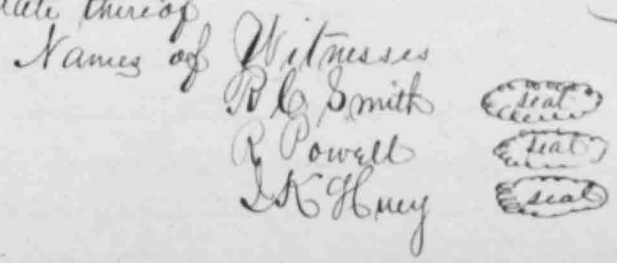 date thereof
Names of Witnesses
R C Smith seal
R Powell seal
I K Huey seal